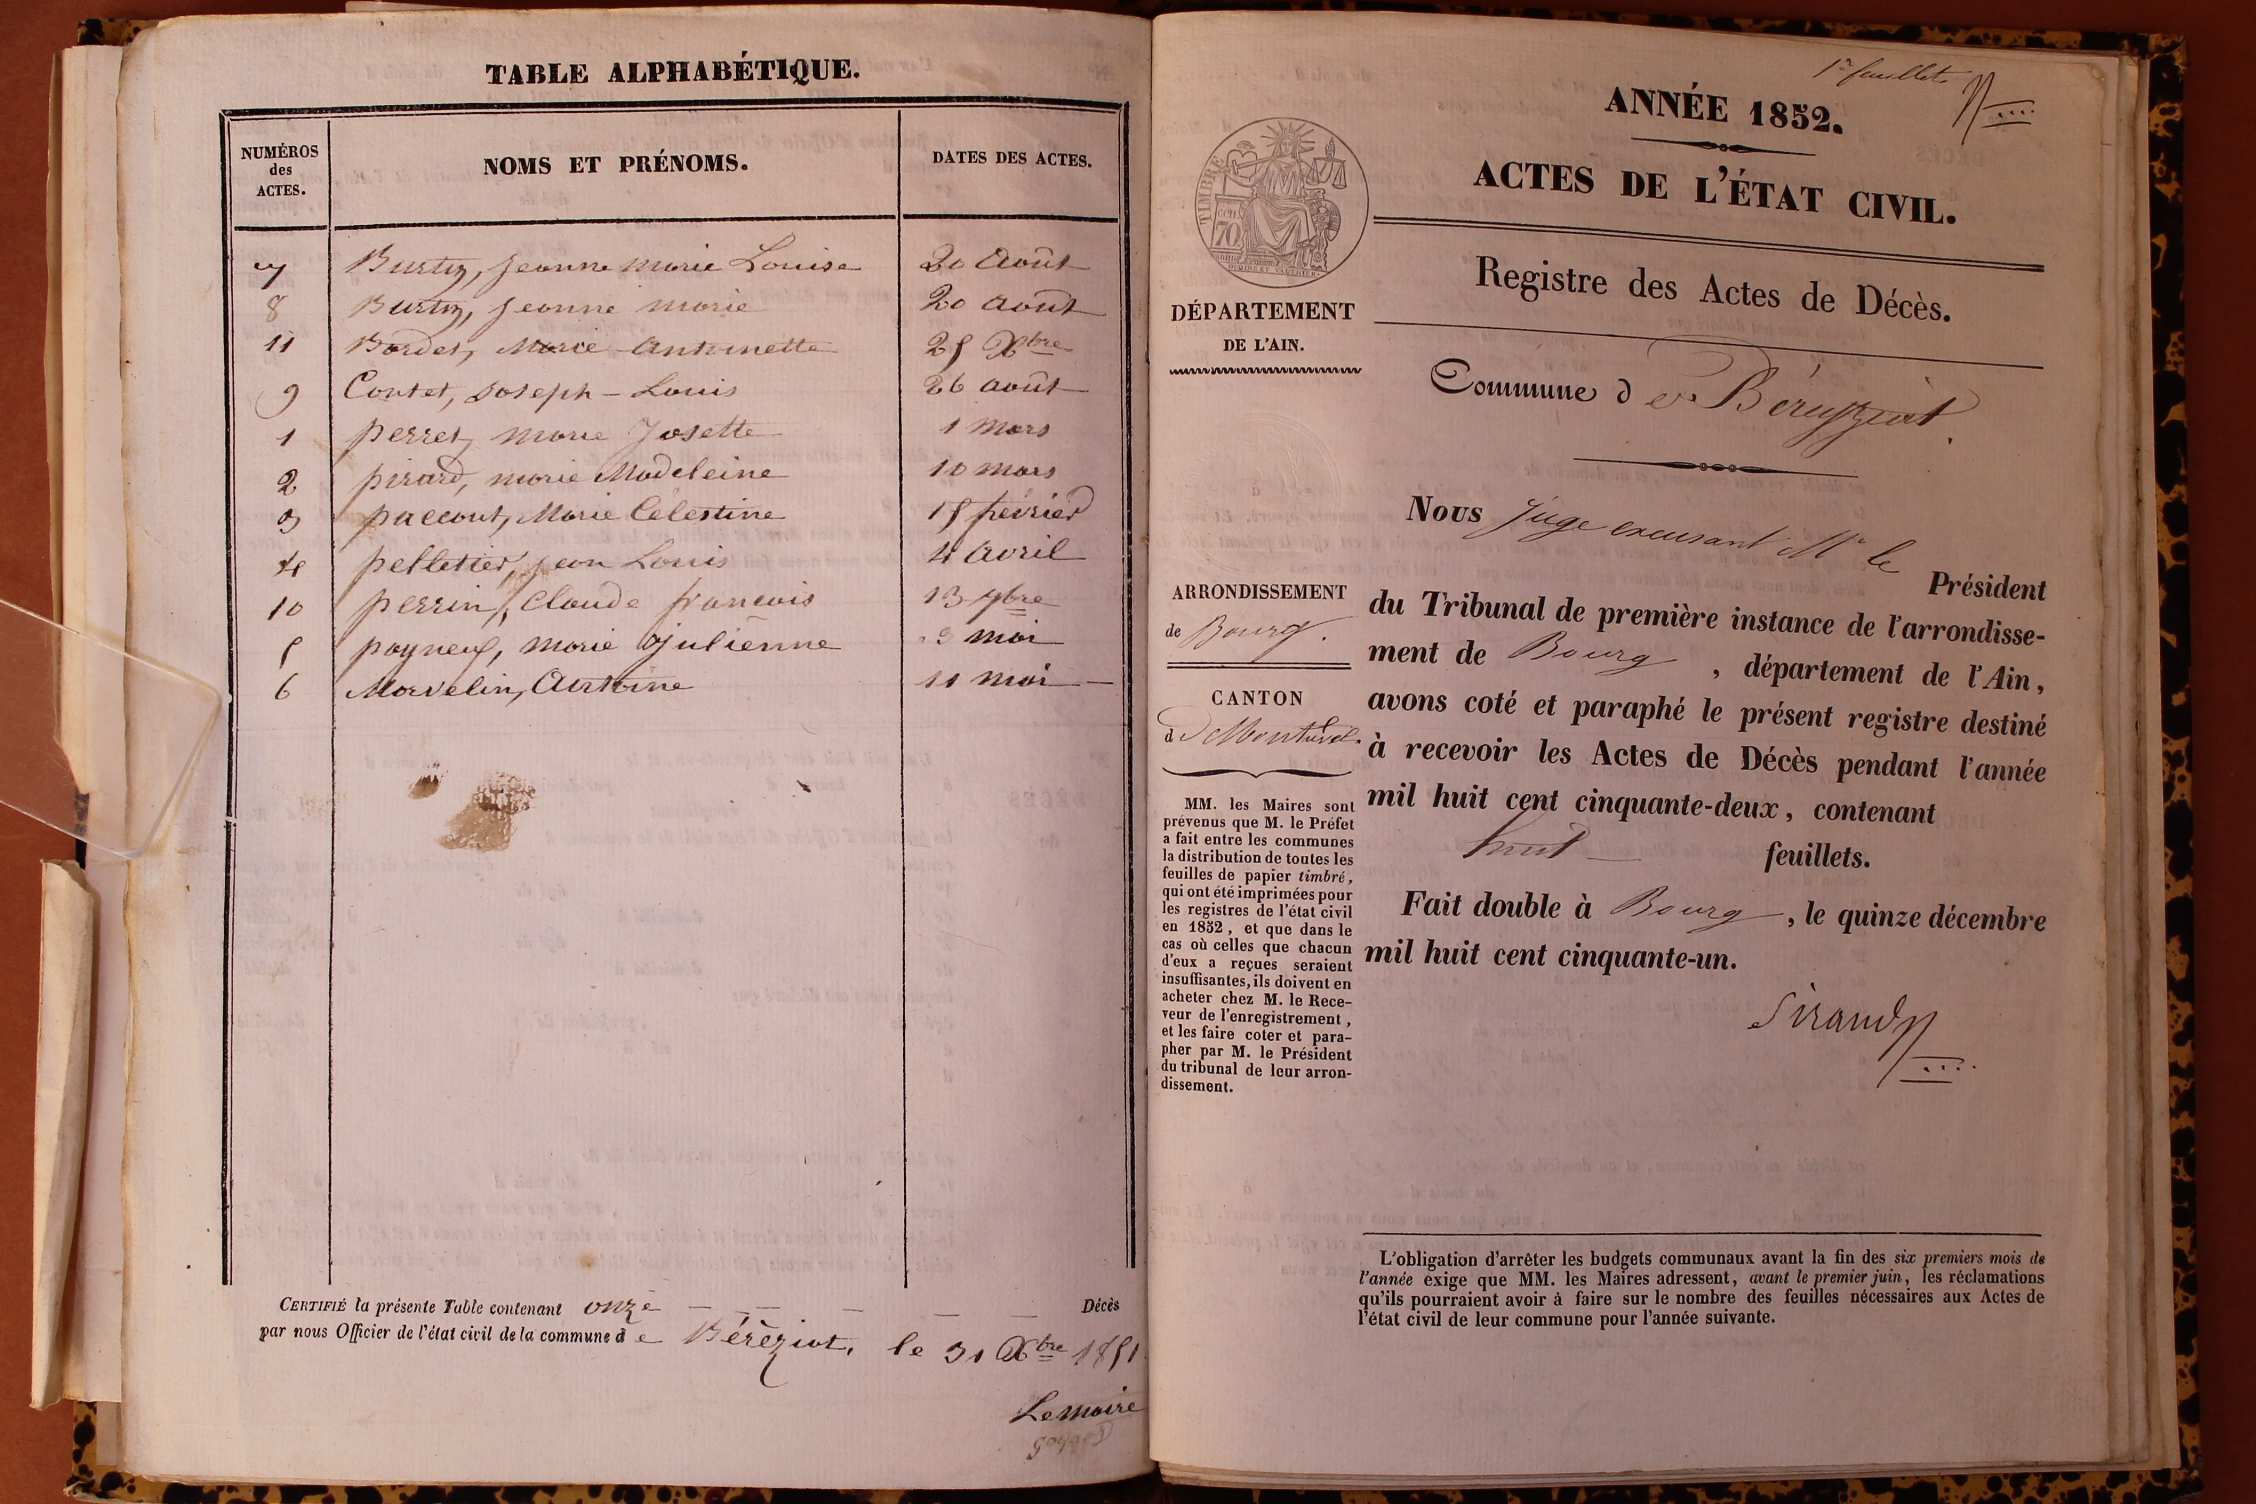 TABLE ALPHABÉTIQUE.
NUMÉROS des ACTES.
NOMS ET PRÉNOMS.
DATES DES ACTES.
7 Burtin, Jeanne Marie Louise 20 Août
8 Burtin, Jeanne Marie 20 août
11 Bordet, Marie Antoinette 25 Xbre
9 Contet, Joseph - Louis 26 août
1 Perret, Marie Josette 1 Mars
2 Pirard, Marie Madeleine 10 mars
3 Paccout, Marie Célestine 15 février
4 Pelletier, Jean Louis 4 avril
10 Perrin, Claude françois 13 9bre
5 Poyneuf, Marie Julienne 3 mai
6 Morvelin, Antoine 11 mai
CERTIFIÉ la présente Table contenant onze Décès
par nous Officier de l'état civil de la commune de Béréziat, le 31 Xbre 1851
Le maire
1er feuillet
ANNÉE 1852.
ACTES DE L'ÉTAT CIVIL.
Registre des Actes de Décès.
TIMBRE
CEN
70
DÉPARTEMENT
DE L'AIN.
Commune de Béreyziat.
Nous Juge excusant Mr le Président
du Tribunal de première instance de l'arrondisse-
ment de Bourg, département de l'Ain,
avons coté et paraphé le présent registre destiné
à recevoir les Actes de Décès pendant l'année
mil huit cent cinquante-deux, contenant
huit feuillets.
Fait double à Bourg, le quinze décembre
mil huit cent cinquante-un.
Sirand
ARRONDISSEMENT
de Bourg.
CANTON
de Montrevel.
MM. les Maires sont
prévenus que M. le Préfet
a fait entre les communes
la distribution de toutes les
feuilles de papier timbré,
qui ont été imprimées pour
les registres de l'état civil
en 1852, et que dans le
cas où celles que chacun
d'eux a reçues seraient
insuffisantes, ils doivent en
acheter chez M. le Rece-
veur de l'enregistrement,
et les faire coter et para-
pher par M. le Président
du tribunal de leur arron-
dissement.
L'obligation d'arrêter les budgets communaux avant la fin des six premiers mois de
l'année exige que MM. les Maires adressent, avant le premier juin, les réclamations
qu'ils pourraient avoir à faire sur le nombre des feuilles nécessaires aux Actes de
l'état civil de leur commune pour l'année suivante.